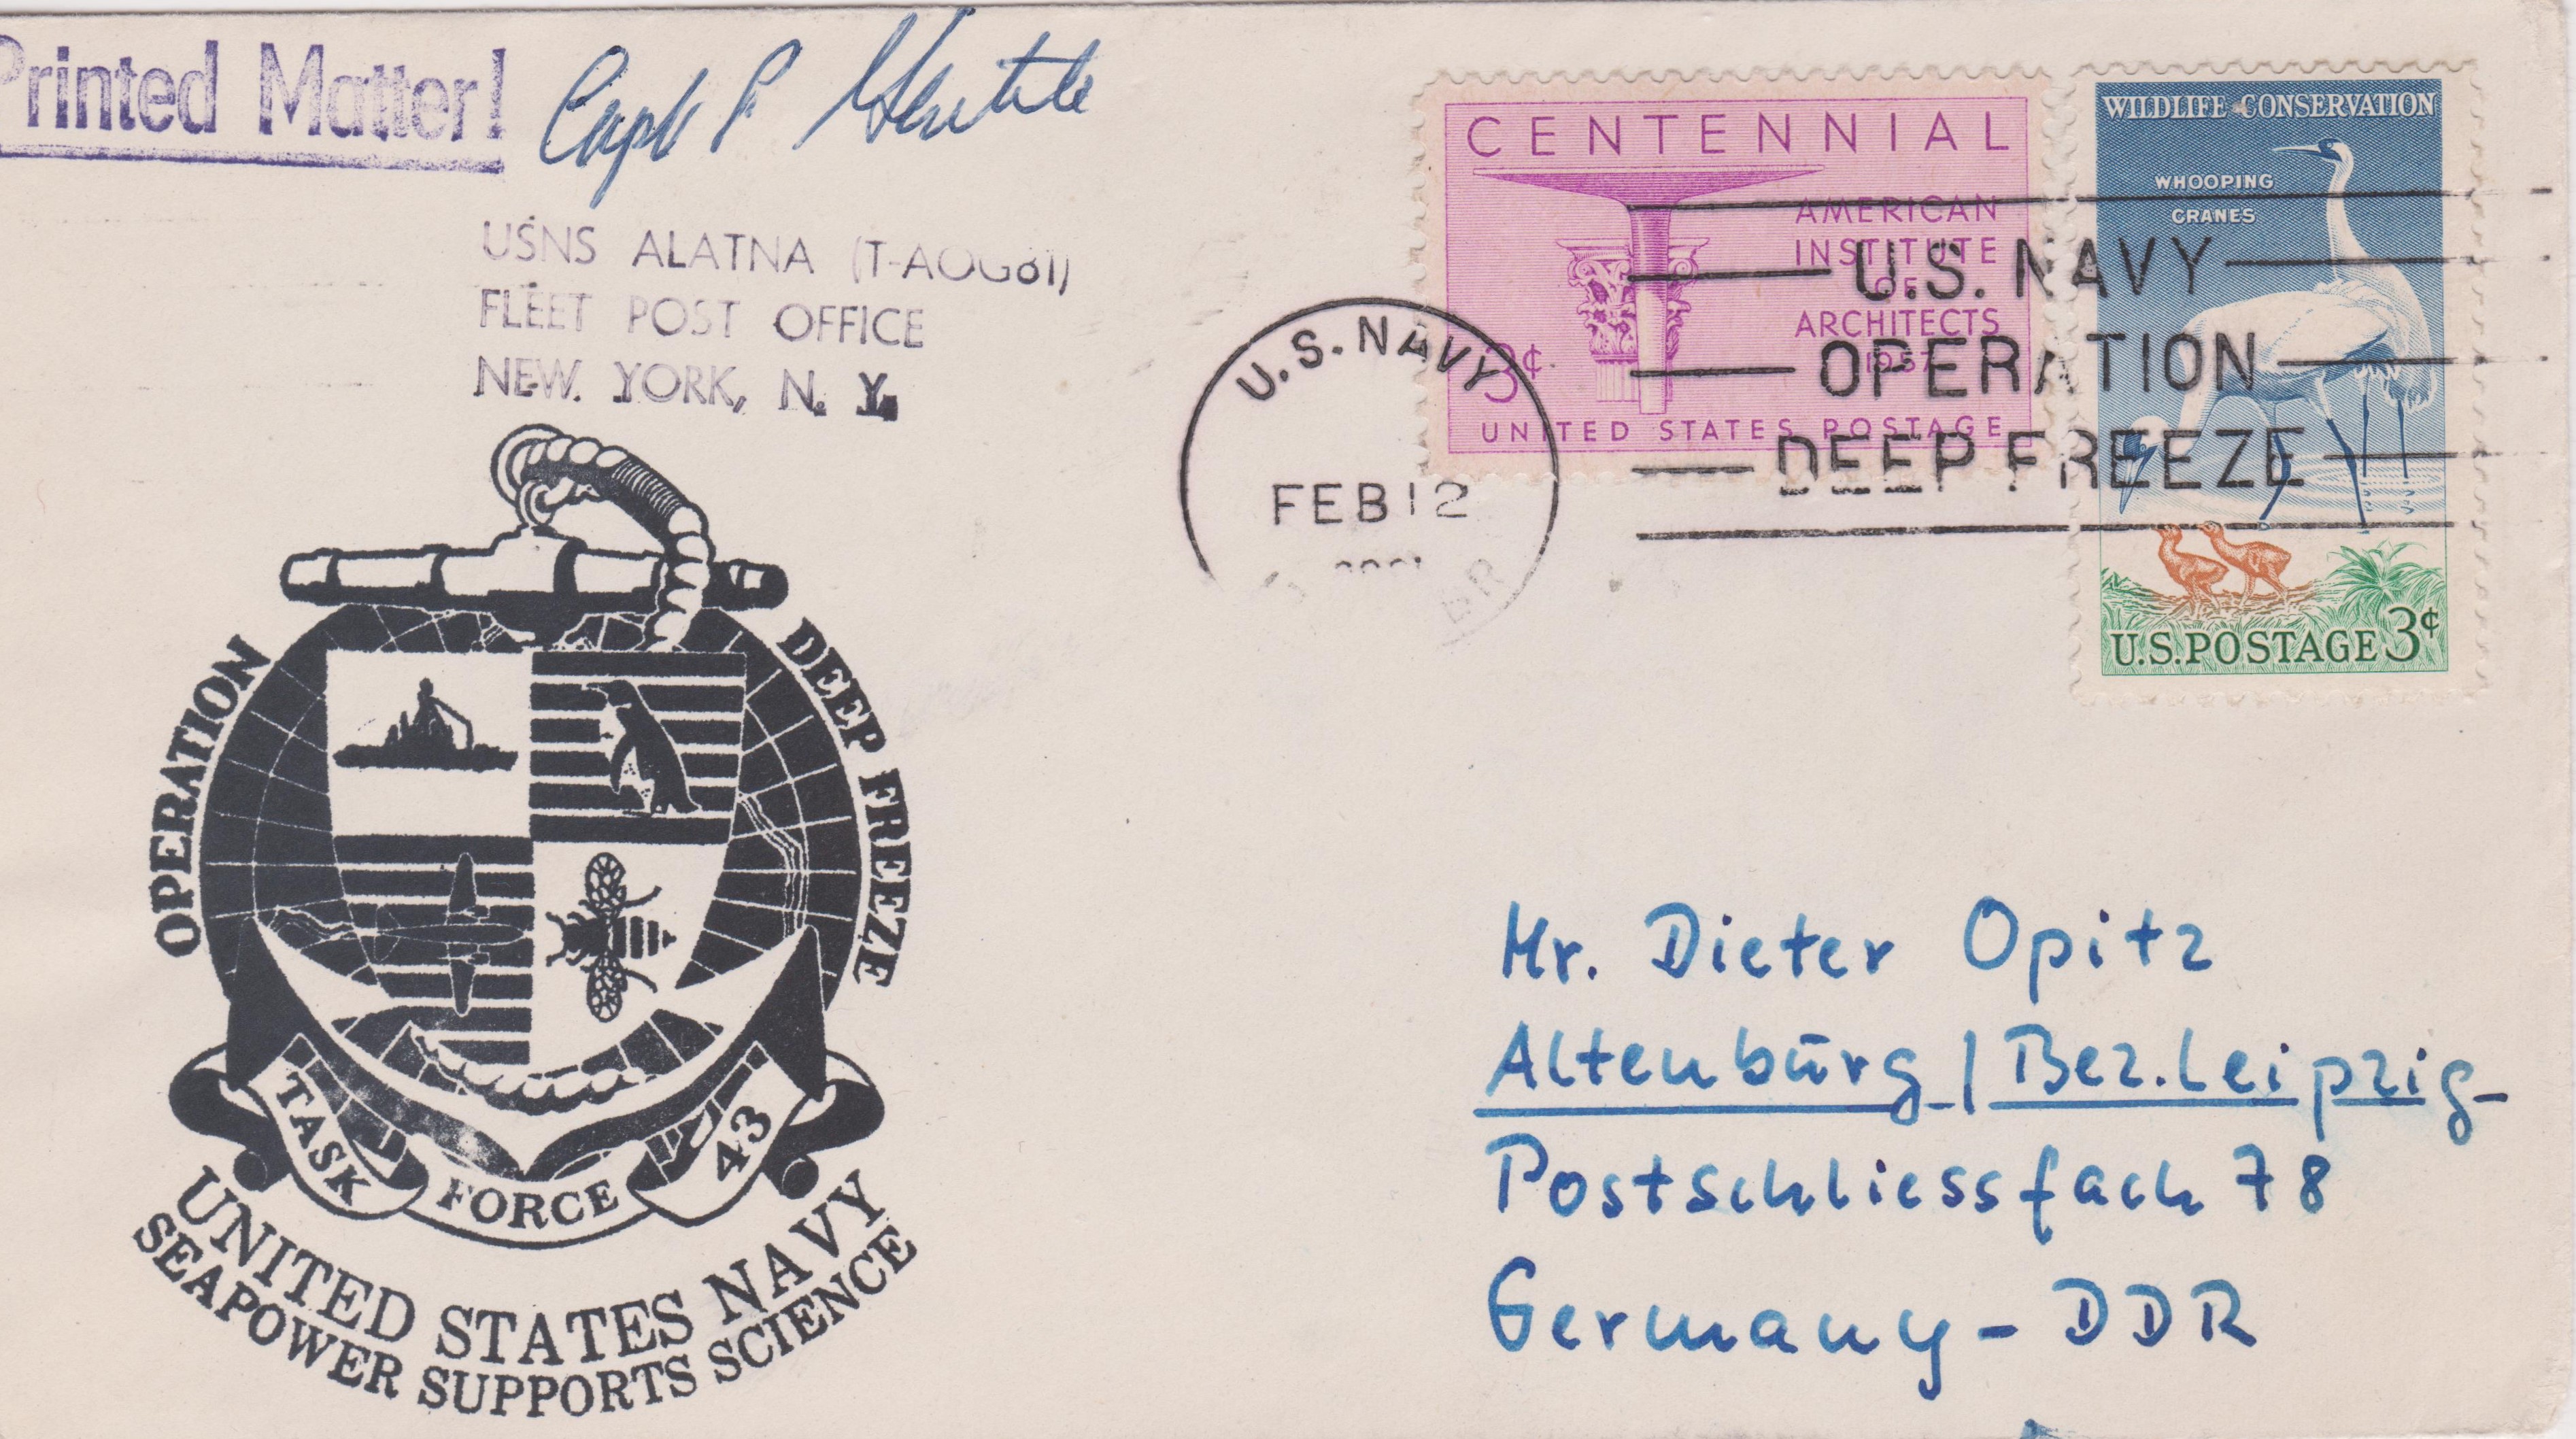 Printed Matter!
USNS ALATNA (T-AOG81)
FLEET POST OFFICE
NEW YORK, N. Y.
CENTENNIAL
AMERICAN
INSTITUTE
OF
ARCHITECTS
1957
3¢
UNITED STATES POSTAGE
WILDLIFE CONSERVATION
WHOOPING
CRANES
U.S. POSTAGE 3¢
U.S. NAVY
FEB 12
U.S. NAVY
OPERATION
DEEP FREEZE
OPERATION DEEP FREEZE
TASK FORCE 43
UNITED STATES NAVY
SEAPOWER SUPPORTS SCIENCE
Mr. Dieter Opitz
Altenbūrg / Bez. Leipzig
Postschliessfach 78
Germany - DDR